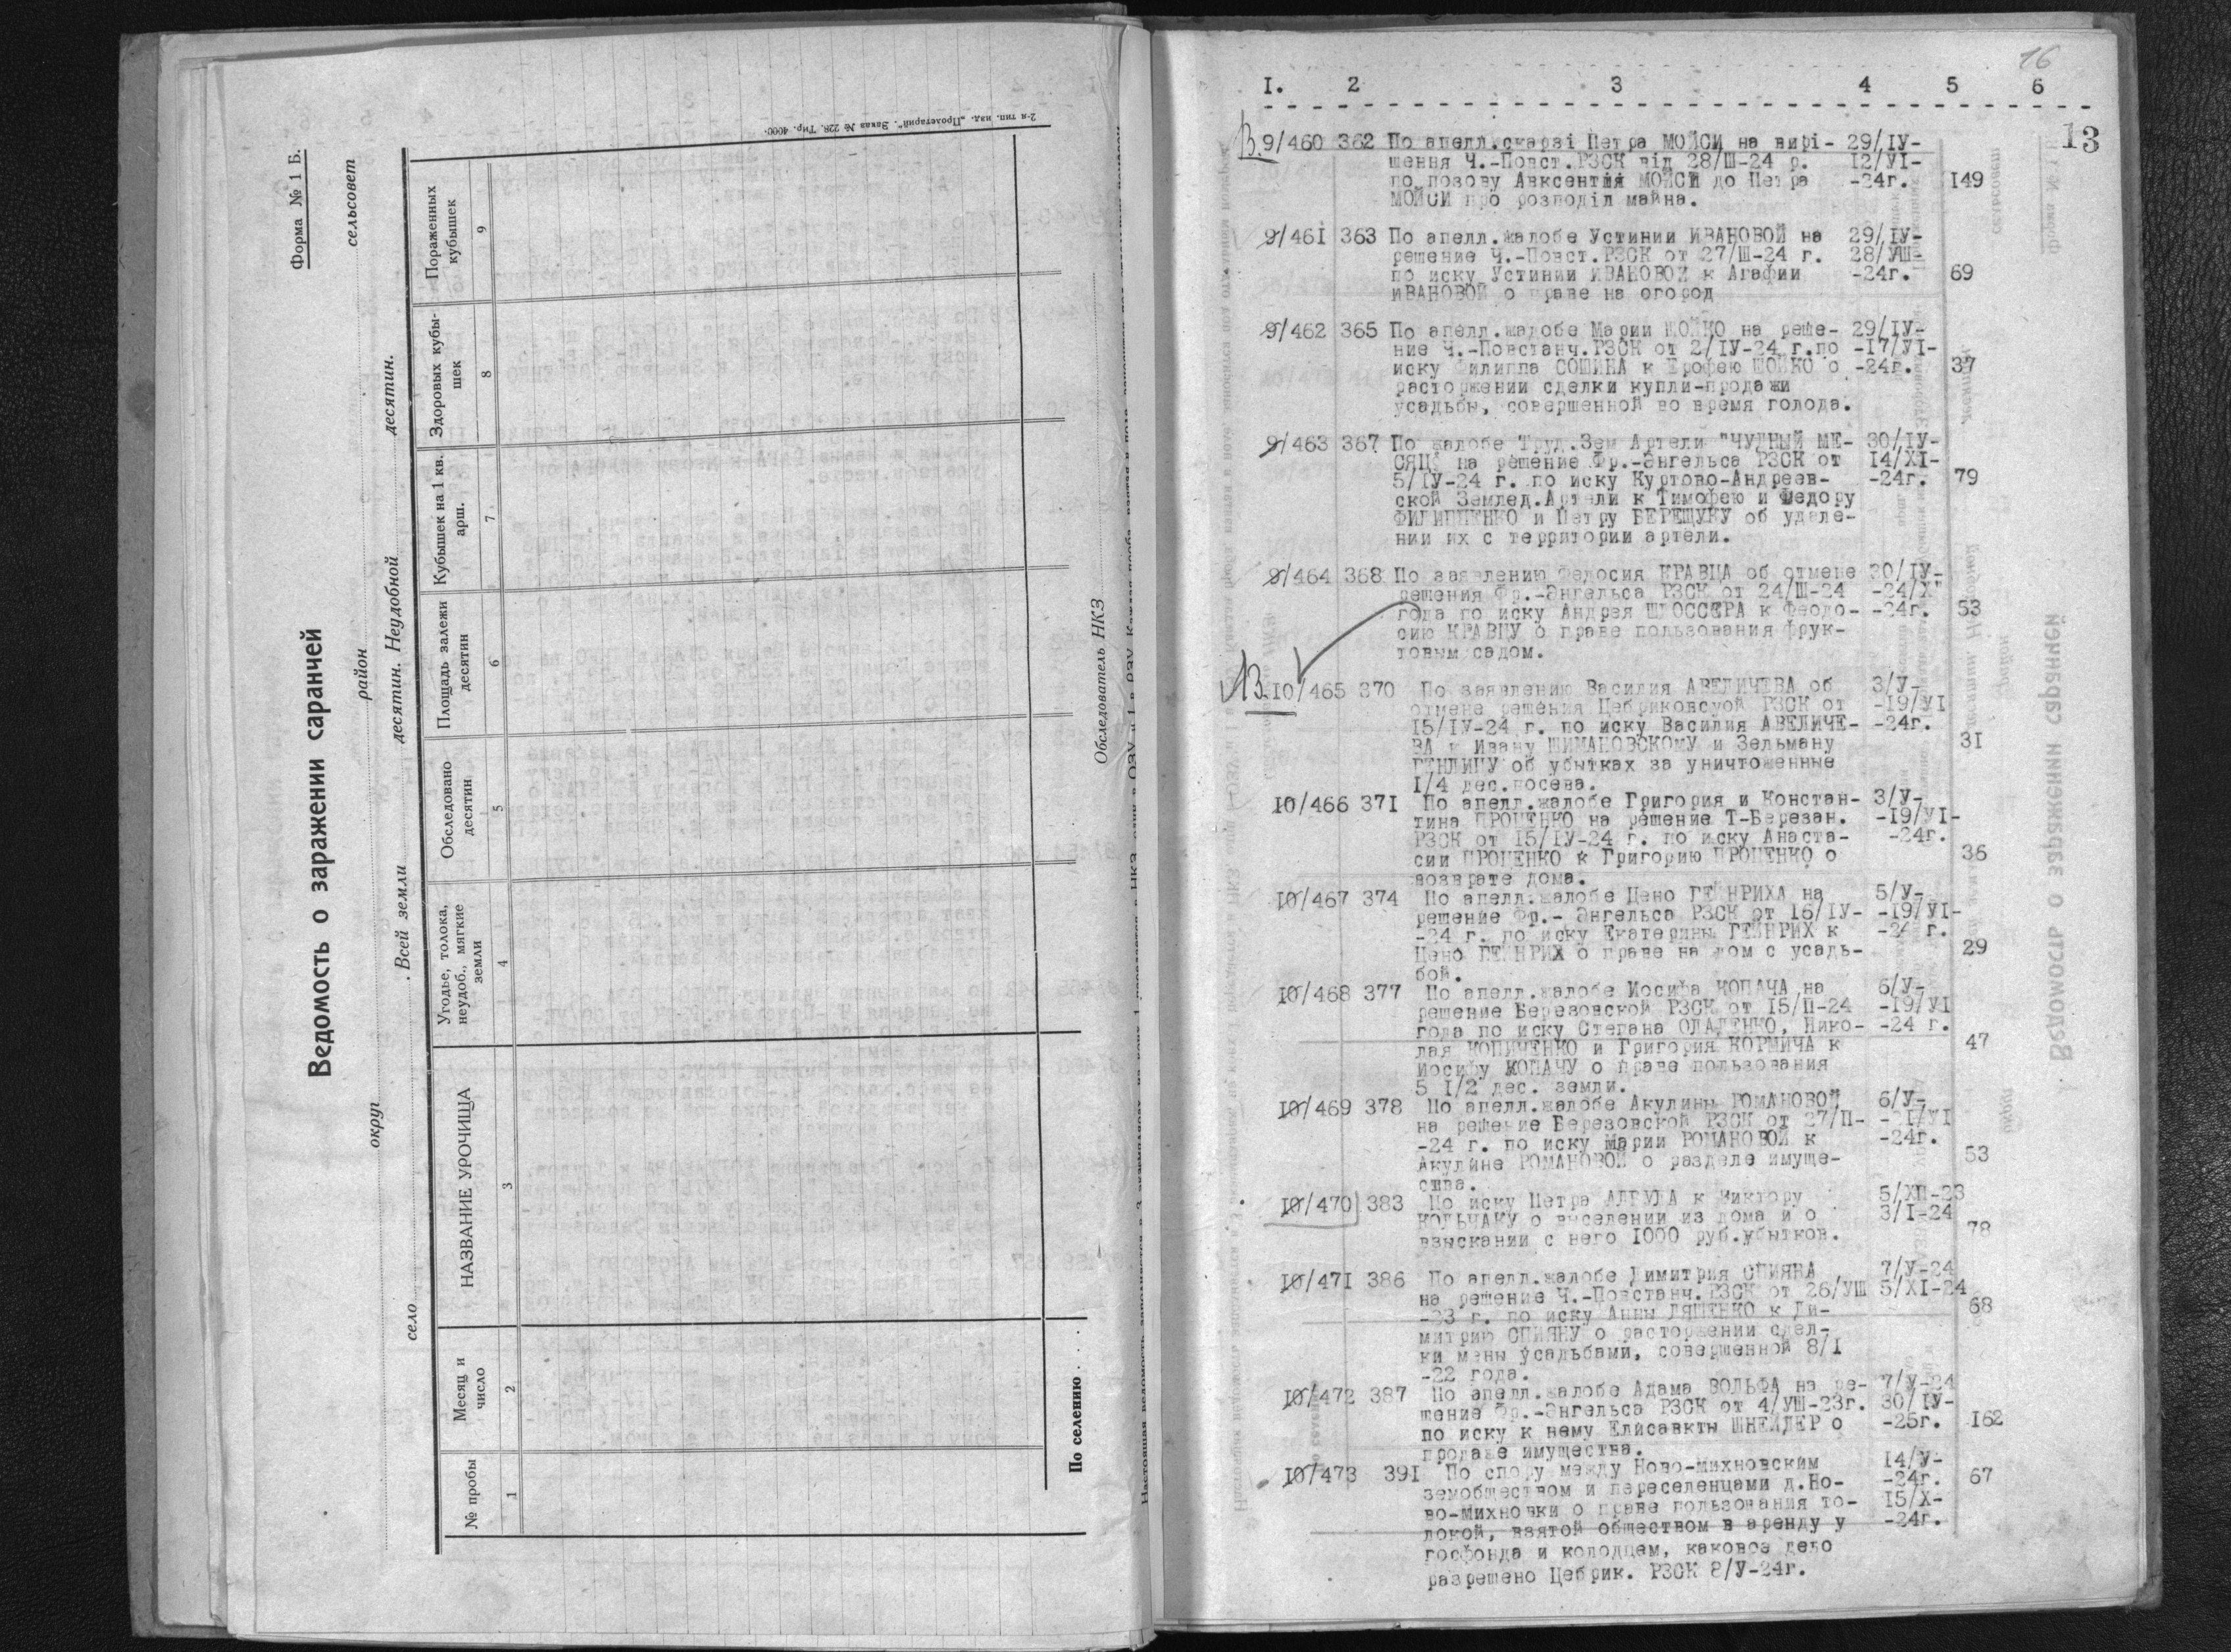 Форма № 1 Б.
Ведомость о заражении саранчей
округ район сельсовет
село . Всей земли десятин. Неудобной десятин.
№ пробы
Месяц и число
НАЗВАНИЕ УРОЧИЩА
Угодье, толока, неудоб., мягкие земли
Обследовано десятин
Площадь залежи десятин
Кубышек на 1 кв. арш.
Здоровых кубы-шек
Пораженных кубышек
1 2 3 4 5 6 7 8 9
По селению . . .
Обследователь НКЗ
2-я тип. изд. „Пролетарий". Заказ № 228. Тир. 4000.
16
I. 2 3 4 5 6
13
В. 9/460 362 По апелл.скарзі Петра МОЙСИ на вирі- 29/ІУ-
шення Ч.-Повст.РЗСК від 28/Ш-24 р. 12/УІ-
по позову Авксентія МОЙСИ до Петра -24г. 149
МОЙСИ про розподіл майна.
9/461 363 По апелл.жалобе Устинии ИВАНОВОЙ на 29/ІУ-
решение Ч.-Повст.РЗСК от 27/Ш-24 г. 28/УШ-
по иску Устинии ИВАНОВОЙ к Агафии -24г. 69
ИВАНОВОЙ о праве на огород
9/462 365 По апелл.жалобе Марии ШОЙКО на реше- 29/ІУ-
ние Ч.-Повстанч.РЗСК от 2/ІУ-24 г.по -17/УІ-
иску Филиппа СОШИНА к Ерофею ШОЙКО о -24г. 37
расторжении сделки купли-продажи
усадьбы, совершенной во время голода.
9/463 367 По жалобе Труд.Зем Артели "ЧУДНЫЙ МЕ- 30/ІУ-
СЯЦ" на решение Фр.-Энгельса РЗСК от 14/ХІ-
5/ІУ-24 г. по иску Куртово-Андреев- -24г. 79
ской Землед.Артели к Тимофею и Федору
ФИЛИПЕНКО и Петру БЕРЕЩУКУ об удале-
нии их с территории артели.
9/464 368 По заявлению Федосия КРАВЦА об отмене 30/ІУ-
решения Фр.-Энгельса РЗСК от 24/Ш-24 -24/Х
года по иску Андрея ШЛОССЕРА к Феодо- -24г. 53
сию КРАВЦУ о праве пользования фрук-
товым садом.
В. 10/465 370 По заявлению Василия АВЕЛИЧЕВА об 3/У-
отмене решения Цебриковсуой РЗСК от -19/УІ
15/ІУ-24 г. по иску Василия АВЕЛИЧЕ- -24г.
ВА к Ивану ШИМАНОВСКОМУ и Зельману 31
об убытках за уничтоженные
1/4 дес.посева.
10/466 371 По апелл.жалобе Григория и Констан- 3/У-
тина ПРОЦЕНКО на решение Т-Березан. -19/УІ-
РЗСК от 15/ІУ-24 г. по иску Анаста- -24г.
сии ПРОЦЕНКО к Григорию ПРОЦЕНКО о 36
возврате дома.
10/467 374 По апелл.жалобе Цено ГЕЙНРИХА на 5/У-
решение Фр.- Энгельса РЗСК от 16/ІУ- -19/УІ-
-24 г. по иску Екатерины ГЕЙНРИХ к -24 г.
Цено ГЕЙНРИХ о праве на дом с усадь- 29
бой.
10/468 377 По апелл.жалобе Иосифа КОПАЧА на 6/У-
решение Березовской РЗСК от 15/П-24 -19/УІ
года по иску Степана ОЛАДЕНКО, Нико- -24 г.
лая КОПИЧЕНКО и Григория КОРМИЧА к 47
Иосифу КОПАЧУ о праве пользования
5 1/2 дес. земли.
10/469 378 По апелл.жалобе Акулины РОМАНОВОЙ 6/У-
на решение Березовской РЗСК от 27/П- -21/УІ
-24 г. по иску Марии РОМАНОВОЙ к -24г.
Акулине РОМАНОВОЙ о разделе имуще- 53
ства.
10/470 383 По иску Петра к Виктору 5/ХП-23
КОЛЬЧАКУ о выселении из дома и о 3/І-24
взыскании с него 1000 руб.убытков. 78
10/471 386 По апелл.жалобе Димитрия СПИЯНА 7/У-24
на решение Ч.-Повстанч.РЗСК от 26/УШ 5/ХІ-24
-23 г. по иску Анны ЛЯШЕНКО к Ди- 68
митрию СПИЯНУ о расторжении сдел-
ки мены усадьбами, совершенной 8/І
-22 года.
10/472 387 По апелл.жалобе Адама ВОЛЬФА на ре- 7/У-24
шение Фр.-Энгельса РЗСК от 4/УШ-23г. 30/ІУ-
по иску к нему Елисавкты ШНЕЙДЕР о -25г. 162
продаже имущества.
10/473 391 По спору между Ново-Михновским 14/У-
земобществом и переселенцами д.Но- -24г. 67
во-Михновки о праве пользования то- 15/Х-
локой, взятой обществом в аренду у -24г.
госфонда и колодцем, каковое дело
разрешено Цебрик. РЗСК 8/У-24г.